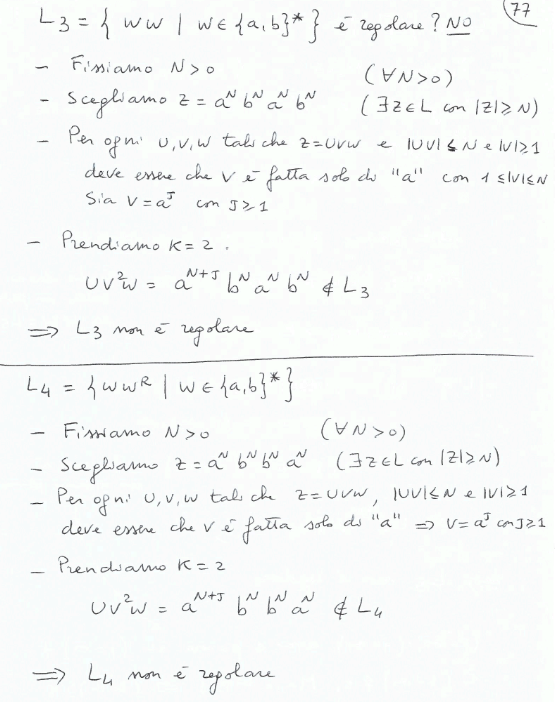 77
L₃ = { ww | w ∈ {a,b}* } è regolare? NO
- Fissiamo N>0 (∀N>0)
- Scegliamo z = aᴺ bᴺ aᴺ bᴺ (∃z∈L con |z|≥N)
- Per ogni u,v,w tali che z=uvw e |uv|≤N e |v|≥1
deve essere che v è fatta solo di "a" con 1≤|v|≤N
Sia v = aᴶ con J≥1
- Prendiamo K=2.
uv²w = aᴺ⁺ᴶ bᴺ aᴺ bᴺ ∉ L₃
⟹ L₃ non è regolare
L₄ = { wwᴿ | w ∈ {a,b}* }
- Fissiamo N>0 (∀N>0)
- Scegliamo z = aᴺ bᴺ bᴺ aᴺ (∃z∈L con |z|≥N)
- Per ogni u,v,w tali che z=uvw, |uv|≤N e |v|≥1
deve essere che v è fatta solo di "a" ⟹ v=aᴶ con J≥1
- Prendiamo K=2
uv²w = aᴺ⁺ᴶ bᴺ bᴺ aᴺ ∉ L₄
⟹ L₄ non è regolare